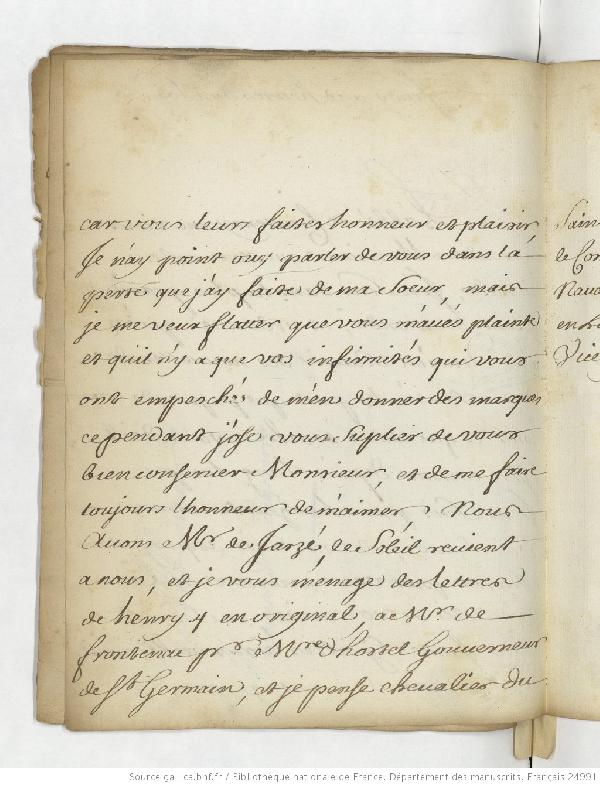 car vous leurs faites honneur et plaisir,
Je n'ay point ouy parler de vous dans la
perte que j'ay faite de ma Soeur, mais
je me veux flater que vous m'aués plainte
et qu'il n'y a que vos infirmités qui vous
ont empeschés de m'en donner des marques
cependant j'ose vous Suplier de vous
bien conseruer Monsieur, et de me faire
toujours l'honneur de m'aimer, Nous
Auons Mr. de Jarzé, le Soleil reuient
a nous, et je vous ménage des lettres
de henry 4 en original, a Mr. de
frontenac pr. Mre d'hostel Gouuerneur
de St Germain, et je pense cheualier du
Sain
le Con
Naua
en
Vice
Source gallica.bnf.fr / Bibliothèque nationale de France. Département des manuscrits. Français 24991